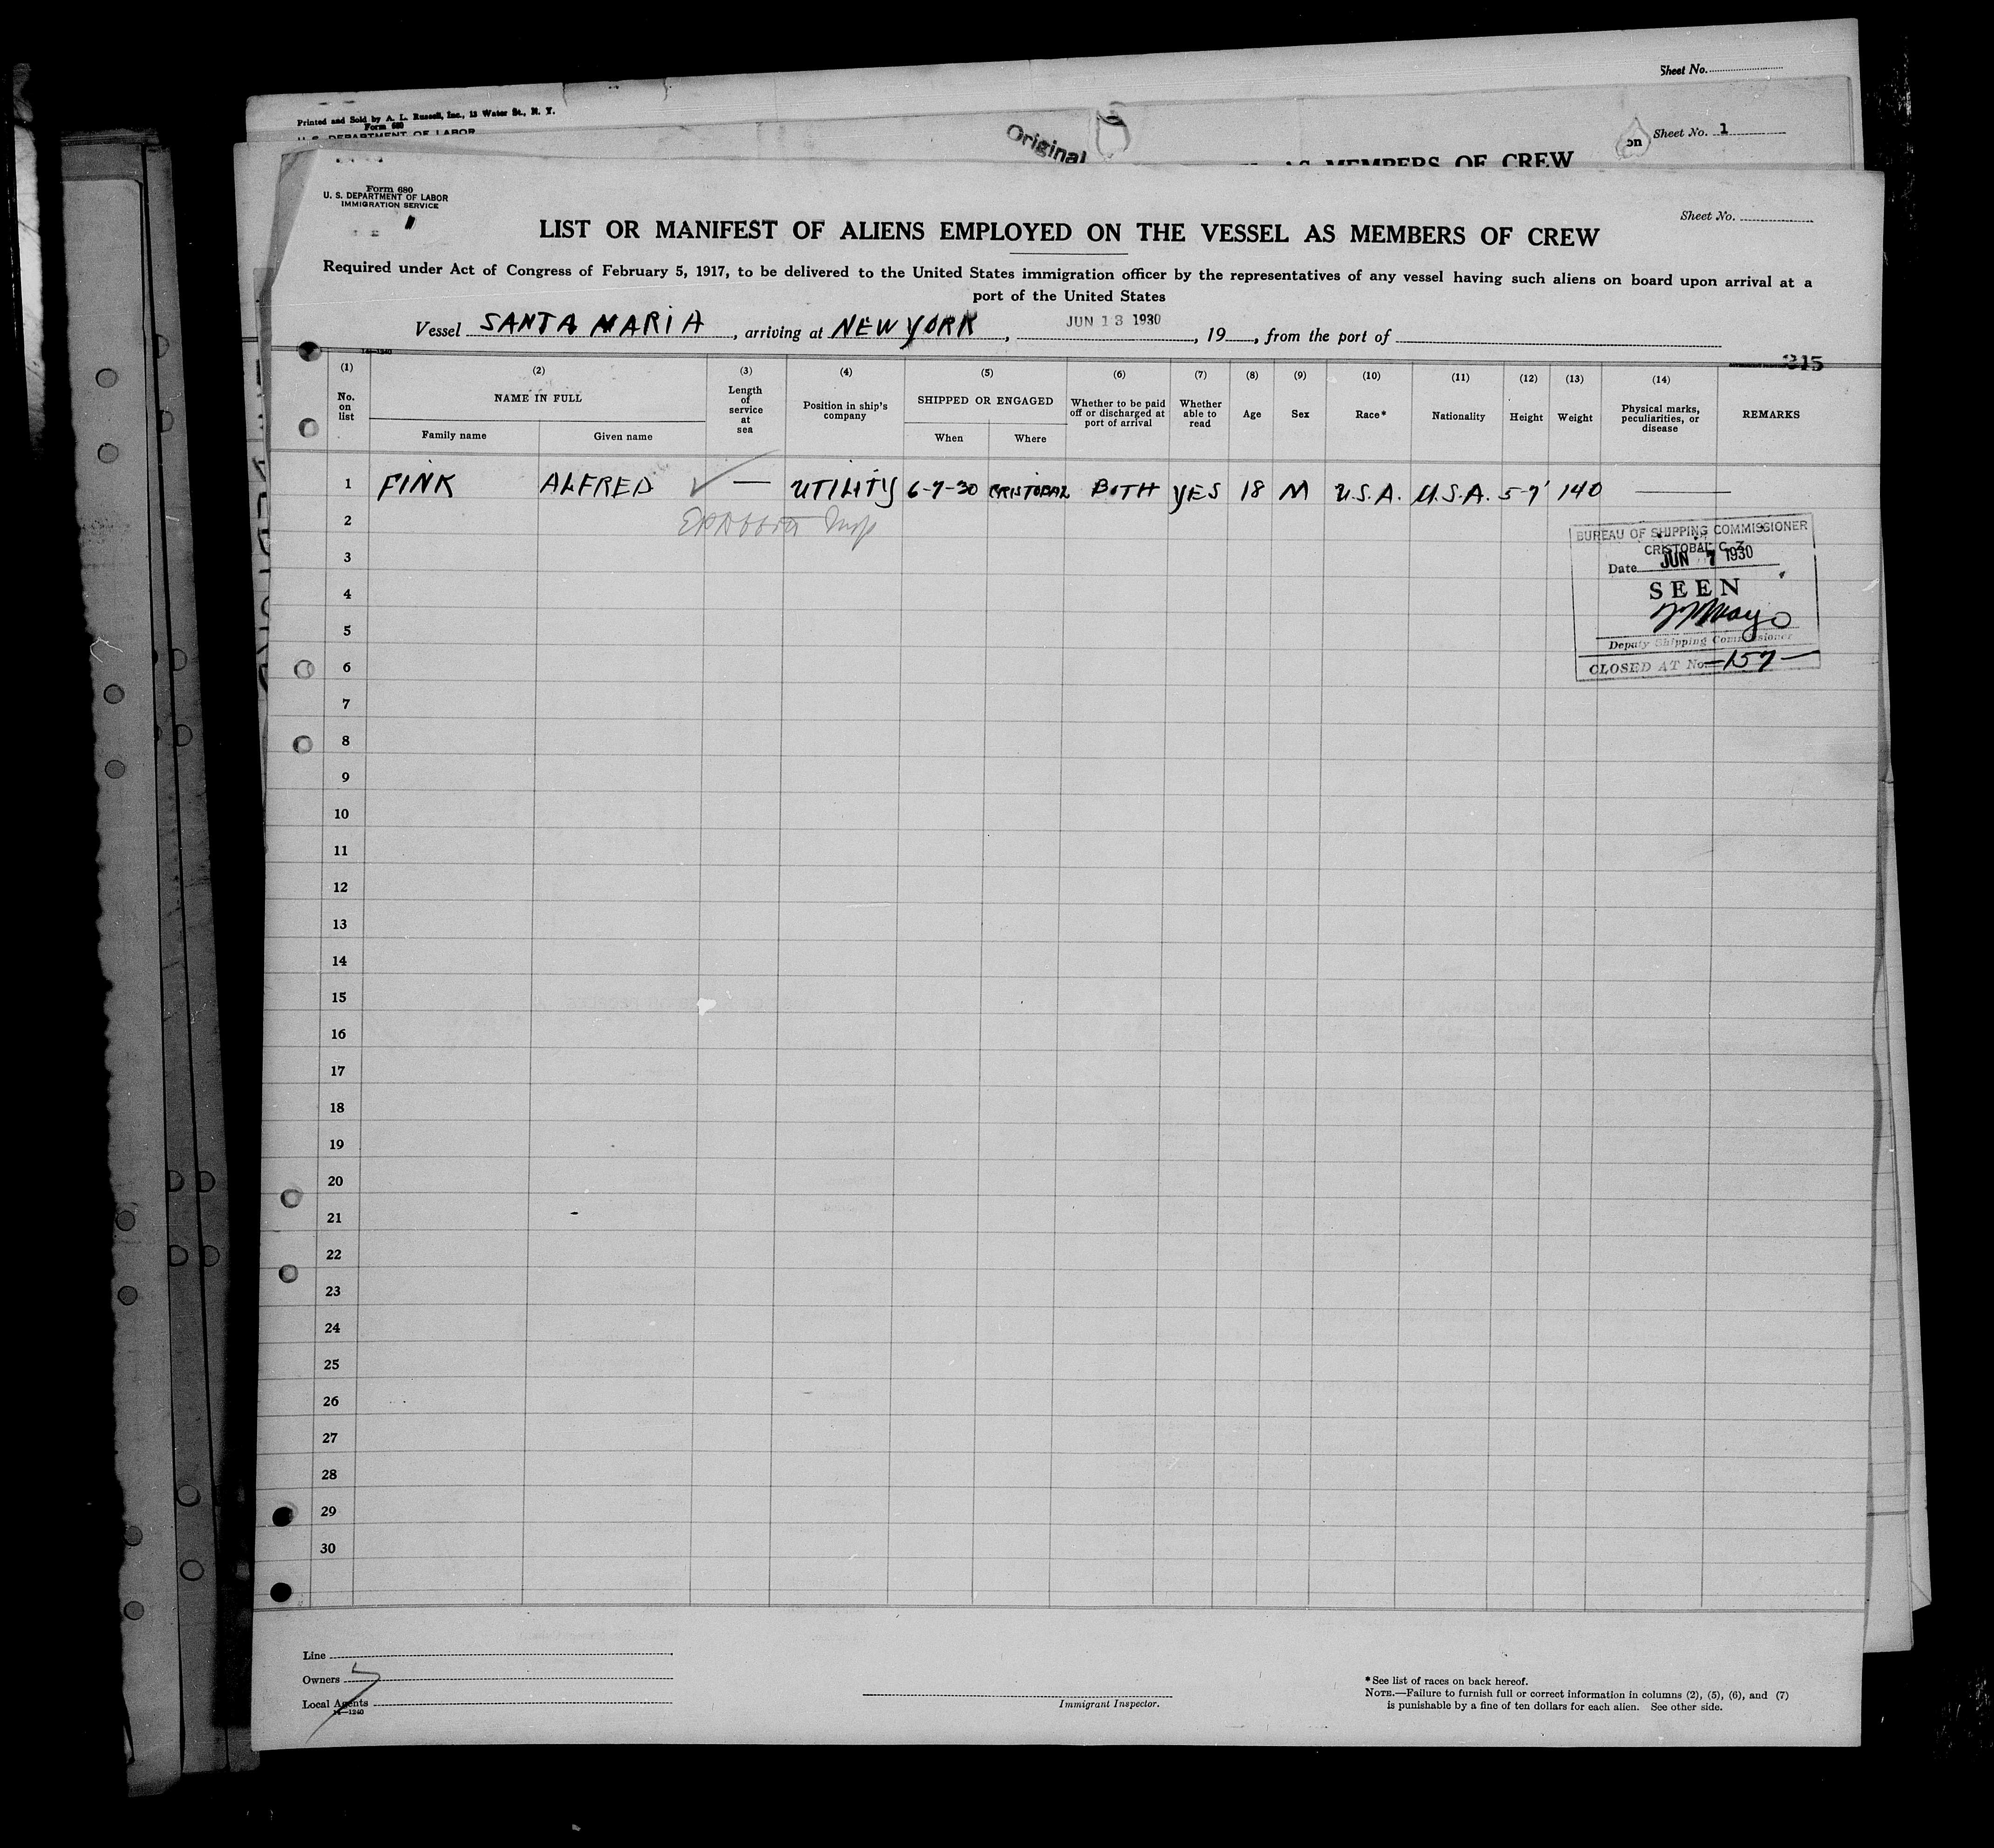 Sheet No.
Printed and Sold by A. L. Russell, Inc., 13 Water St., N. Y.
Form 680
U. S. DEPARTMENT OF LABOR
Original
on Sheet No. 1
AS MEMBERS OF CREW
Form 680
U. S. DEPARTMENT OF LABOR
IMMIGRATION SERVICE
Sheet No.
LIST OR MANIFEST OF ALIENS EMPLOYED ON THE VESSEL AS MEMBERS OF CREW
Required under Act of Congress of February 5, 1917, to be delivered to the United States immigration officer by the representatives of any vessel having such aliens on board upon arrival at a
port of the United States
Vessel SANTA MARIA, arriving at NEW YORK, JUN 13 1930, 19, from the port of
14—1240
315
(1) (2) (3) (4) (5) (6) (7) (8) (9) (10) (11) (12) (13) (14)
No. on list
NAME IN FULL
Family name
Given name
Length of service at sea
Position in ship's company
SHIPPED OR ENGAGED
When
Where
Whether to be paid off or discharged at port of arrival
Whether able to read
Age
Sex
Race*
Nationality
Height
Weight
Physical marks, peculiarities, or disease
REMARKS
1 FINK ALFRED ✓ — UTILITY 6-7-30 CRISTOBAL BOTH YES 18 M U.S.A. U.S.A. 5-7' 140 —
2
3
4
5
6
7
8
9
10
11
12
13
14
15
16
17
18
19
20
21
22
23
24
25
26
27
28
29
30
BUREAU OF SHIPPING COMMISSIONER
CRISTOBAL C. Z.
Date JUN 7 1930
SEEN
Deputy Shipping Commissioner
CLOSED AT No. —157—
Line
Owners
Local Agents
14—1240
Immigrant Inspector.
*See list of races on back hereof.
NOTE.—Failure to furnish full or correct information in columns (2), (5), (6), and (7)
is punishable by a fine of ten dollars for each alien. See other side.